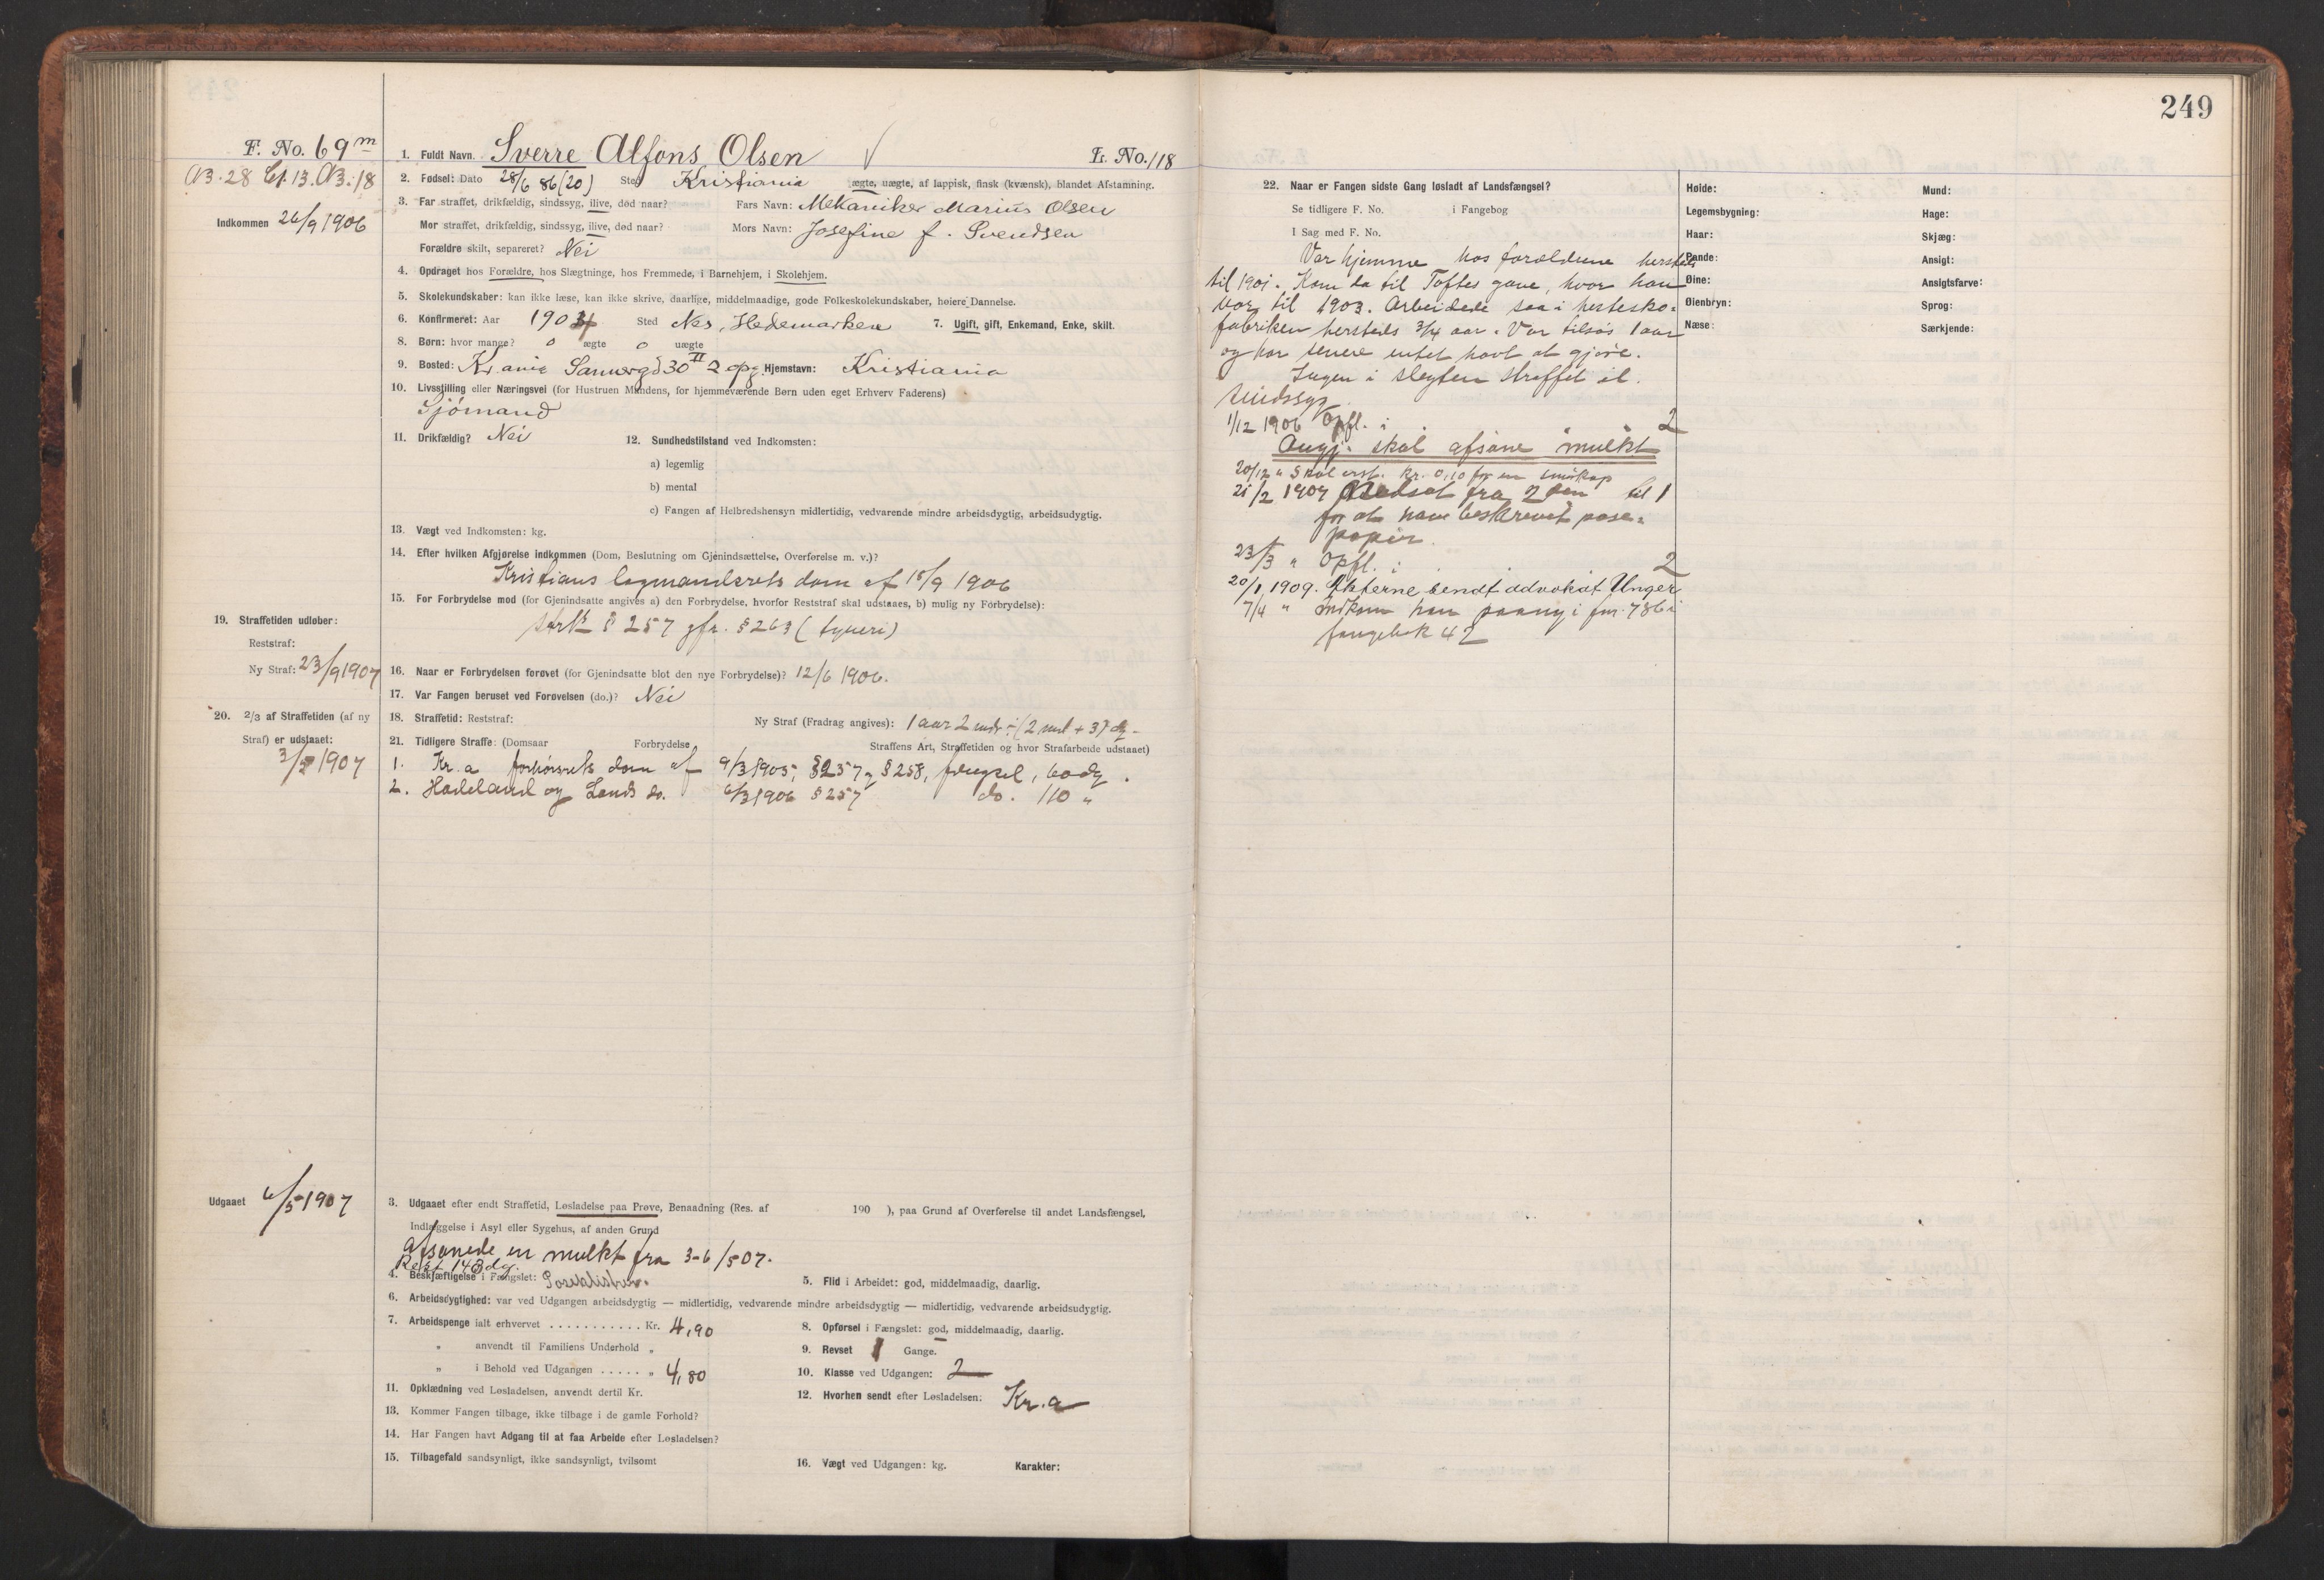 249
F. No. 69 m
1. Fuldt Navn. Sverre Alfons Olsen
L. No. 118
2. Fødsel: Dato 28/6 86 (20) Sted Kristiania ægte, uægte, af lappisk, finsk (kvænsk), blandet Afstamning.
Indkommen 26/9 1906
3. Far straffet, drikfældig, sindssyg, ilive, død naar? Fars Navn: Mekaniker Marius Olsen
Mor straffet, drikfældig, sindssyg, ilive, død naar? Mors Navn: Josefine f. Svendsen
Forældre skilt, separeret? Nei
4. Opdraget hos Forældre, hos Slægtninge, hos Fremmede, i Barnehjem, i Skolehjem.
5. Skolekundskaber: kan ikke læse, kan ikke skrive, daarlige, middelmaadige, gode Folkeskolekundskaber, høiere Dannelse.
6. Konfirmeret: Aar 190 Sted Nes, Hedemarken 7. Ugift, gift, Enkemand, Enke, skilt.
8. Børn: hvor mange? 0 ægte 0 uægte
9. Bosted: Kr.ania Sannergd 30 II 2 opg. Hjemstavn: Kristiania
10. Livsstilling eller Næringsvei (for Hustruen Mandens, for hjemmeværende Børn uden eget Erhverv Faderens)
Sjømand
11. Drikfældig? Nei 12. Sundhedstilstand ved Indkomsten:
a) legemlig
b) mental
c) Fangen af Helbredshensyn midlertidig, vedvarende mindre arbeidsdygtig, arbeidsudygtig.
13. Vægt ved Indkomsten: kg.
14. Efter hvilken Afgjørelse indkommen (Dom, Beslutning om Gjenindsættelse, Overførelse m. v.)?
Kristians lagmandsrets dom af 18/9 1906
15. For Forbrydelse mod (for Gjenindsatte angives a) den Forbrydelse, hvorfor Reststraf skal udstaaes, b) mulig ny Forbrydelse):
strfl. § 257 jfr. § 263 (tyveri)
19. Straffetiden udløber:
Reststraf:
Ny Straf: 23/9 1907
16. Naar er Forbrydelsen forøvet (for Gjenindsatte blot den nye Forbrydelse)? 12/6 1906.
17. Var Fangen beruset ved Forøvelsen (do.)? Nei
20. 2/3 af Straffetiden (af ny
Straf) er udstaaet:
3/5 1907
18. Straffetid: Reststraf: Ny Straf (Fradrag angives): 1 aar 2 mdr ÷ (2 + 3) dg
21. Tidligere Straffe: (Domsaar Forbrydelse Straffens Art, Straffetiden og hvor Strafarbeide udstaaet)
1. Kr.a forhørsrets dom af 9/3 1905, § 257 § 258, fængsel, 60 dg.
2. Hadeland og Lands do. 6/3 1906 § 257 do. 110 "
Udgaaet 6/5 1907
3. Udgaaet efter endt Straffetid, Løsladelse paa Prøve, Benaadning (Res. af 190 ), paa Grund af Overførelse til andet Landsfængsel,
Indlæggelse i Asyl eller Sygehus, af anden Grund
afsonede en mulkt fra 3-6/5 07.
Rest 143 dg.
4. Beskjæftigelse i Fængslet:
5. Flid i Arbeidet: god, middelmaadig, daarlig.
6. Arbeidsdygtighed: var ved Udgangen arbeidsdygtig — midlertidig, vedvarende mindre arbeidsdygtig — midlertidig, vedvarende arbeidsudygtig.
7. Arbeidspenge ialt erhvervet . . . . . . . . . . . Kr. 4,90
8. Opførsel i Fængslet: god, middelmaadig, daarlig.
" anvendt til Familiens Underhold "
9. Revset 1 Gange.
" i Behold ved Udgangen . . . . . " 4,80
10. Klasse ved Udgangen: 2
11. Opklædning ved Løsladelsen, anvendt dertil Kr.
12. Hvorhen sendt efter Løsladelsen: Kr.a
13. Kommer Fangen tilbage, ikke tilbage i de gamle Forhold?
14. Har Fangen havt Adgang til at faa Arbeide efter Løsladelsen?
15. Tilbagefald sandsynligt, ikke sandsynligt, tvilsomt
16. Vægt ved Udgangen: kg. Karakter:
22. Naar er Fangen sidste Gang løsladt af Landsfængsel?
Se tidligere F. No. i Fangebog
I Sag med F. No.
Var hjemme hos forældrene hersteds
til 1901. Kom da til Toftes gave, hvor han
var til 1903. Arbeidede saa i hestesko-
fabriken hersteds 3/4 aar. Var tilsjøs 1 aar
og har senere intet havt at gjøre.
Ingen i slegten straffet el.
sindssyg.
1/12 1906 Opfl. i 2
Angj. skal afsone "mulkt"
20/12 " Skal erst. kr. 0,10 for en
21/2 1907 Nedsat fra 2den til 1
for at have beskrevet pose-
papir.
23/3 " Opfl. i 2
20/1 1909. Akterne sendt advokat Unger
7/4 " Indkom han paany i fnr. 786 i
fangebok 42
Høide:
Legemsbygning:
Haar:
Pande:
Øine:
Øienbryn:
Næse:
Mund:
Hage:
Skjæg:
Ansigt:
Ansigtsfarve:
Sprog:
Særkjende: